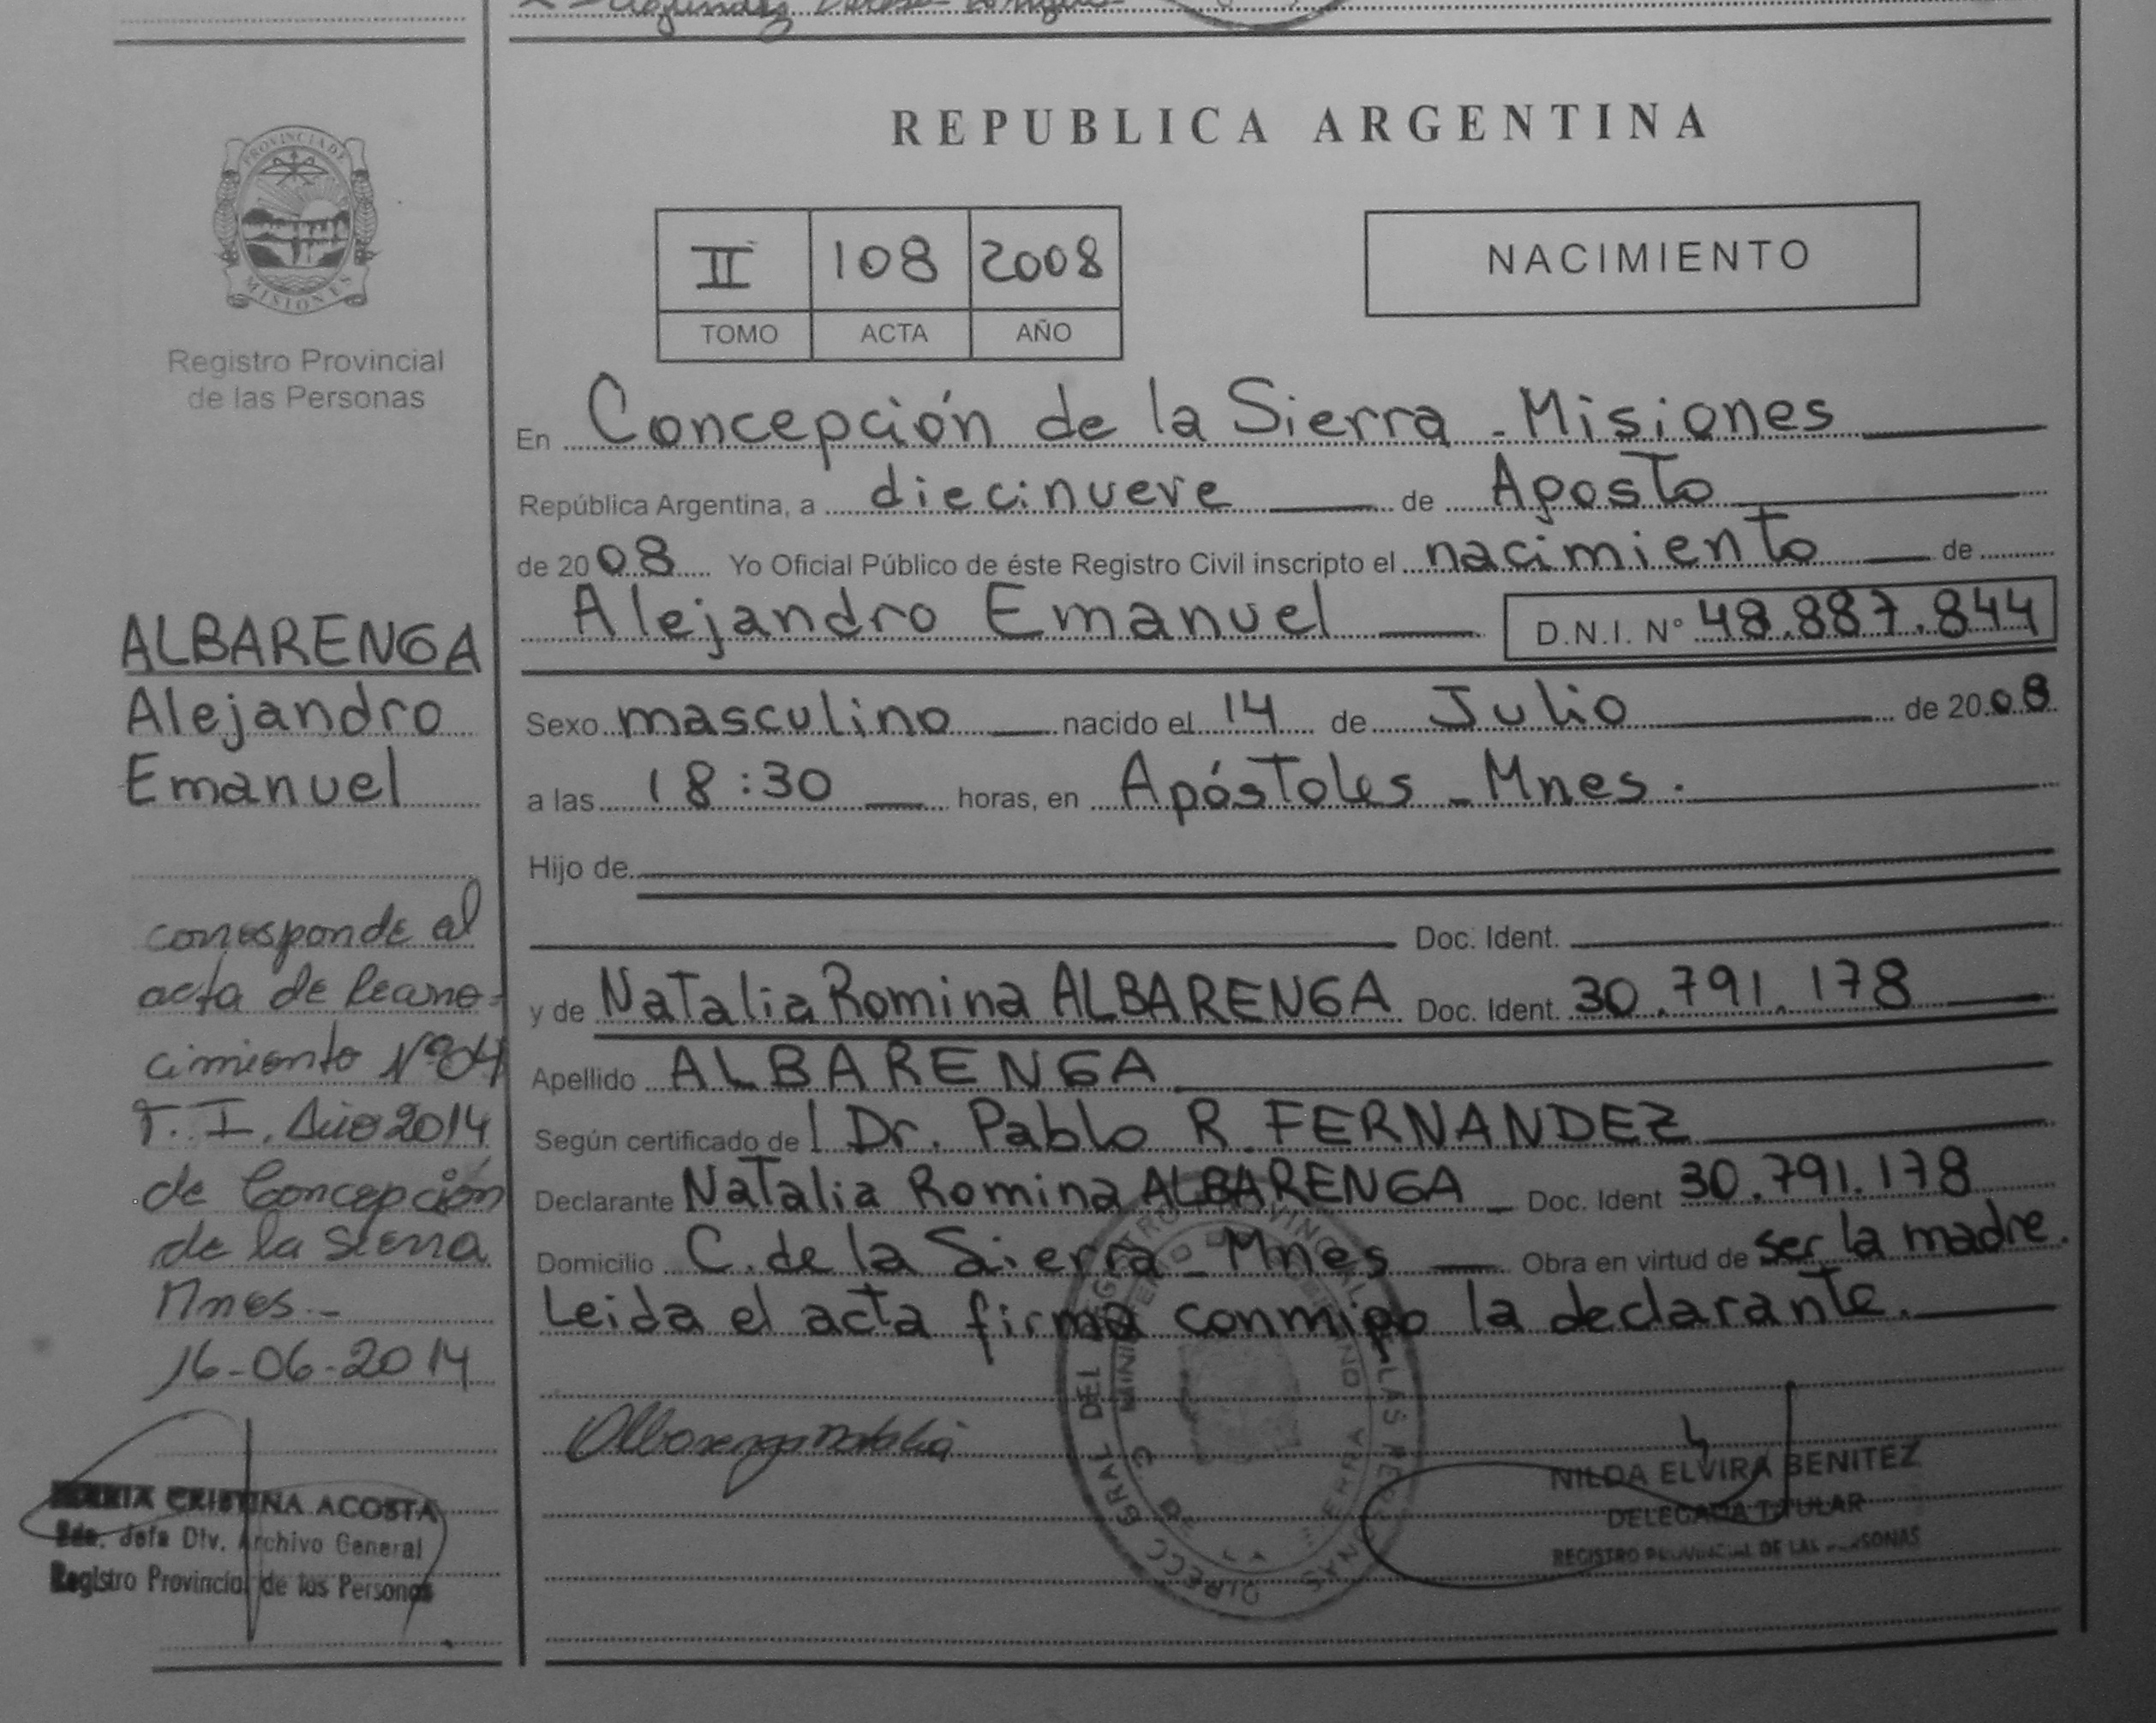 PROVINCIA DE
MISIONES
Registro Provincial
de las Personas
ALBARENGA
Alejandro
Emanuel
corresponde al
acta de recono-
cimiento Nº 04
T. I. Año 2014
de Concepción
de la Sierra
Mnes.-
16-06-2014
MARIA CRISTINA ACOSTA
Jefa Div. Archivo General
Registro Provincial de las Personas
REPUBLICA ARGENTINA
II 108 2008
TOMO ACTA AÑO
NACIMIENTO
En Concepción de la Sierra - Misiones
República Argentina, a diecinueve de Agosto
de 2008 Yo Oficial Público de éste Registro Civil inscripto el nacimiento de
Alejandro Emanuel D.N.I. Nº 48.887.844
Sexo masculino nacido el 14 de Julio de 2008
a las 18:30 horas, en Apóstoles - Mnes.
Hijo de
Doc. Ident.
y de Natalia Romina ALBARENGA Doc. Ident. 30.791.178
Apellido ALBARENGA
Según certificado del Dr. Pablo R. FERNANDEZ
Declarante Natalia Romina ALBARENGA Doc. Ident 30.791.178
Domicilio C. de la Sierra - Mnes Obra en virtud de ser la madre.
Leida el acta firma conmigo la declarante.
Albarenga Natalia
NILDA ELVIRA BENITEZ
DELEGADA TITULAR
REGISTRO PROVINCIAL DE LAS PERSONAS
DIRECC GRAL DEL REGISTRO PROVINCIAL DE LAS PERSONAS